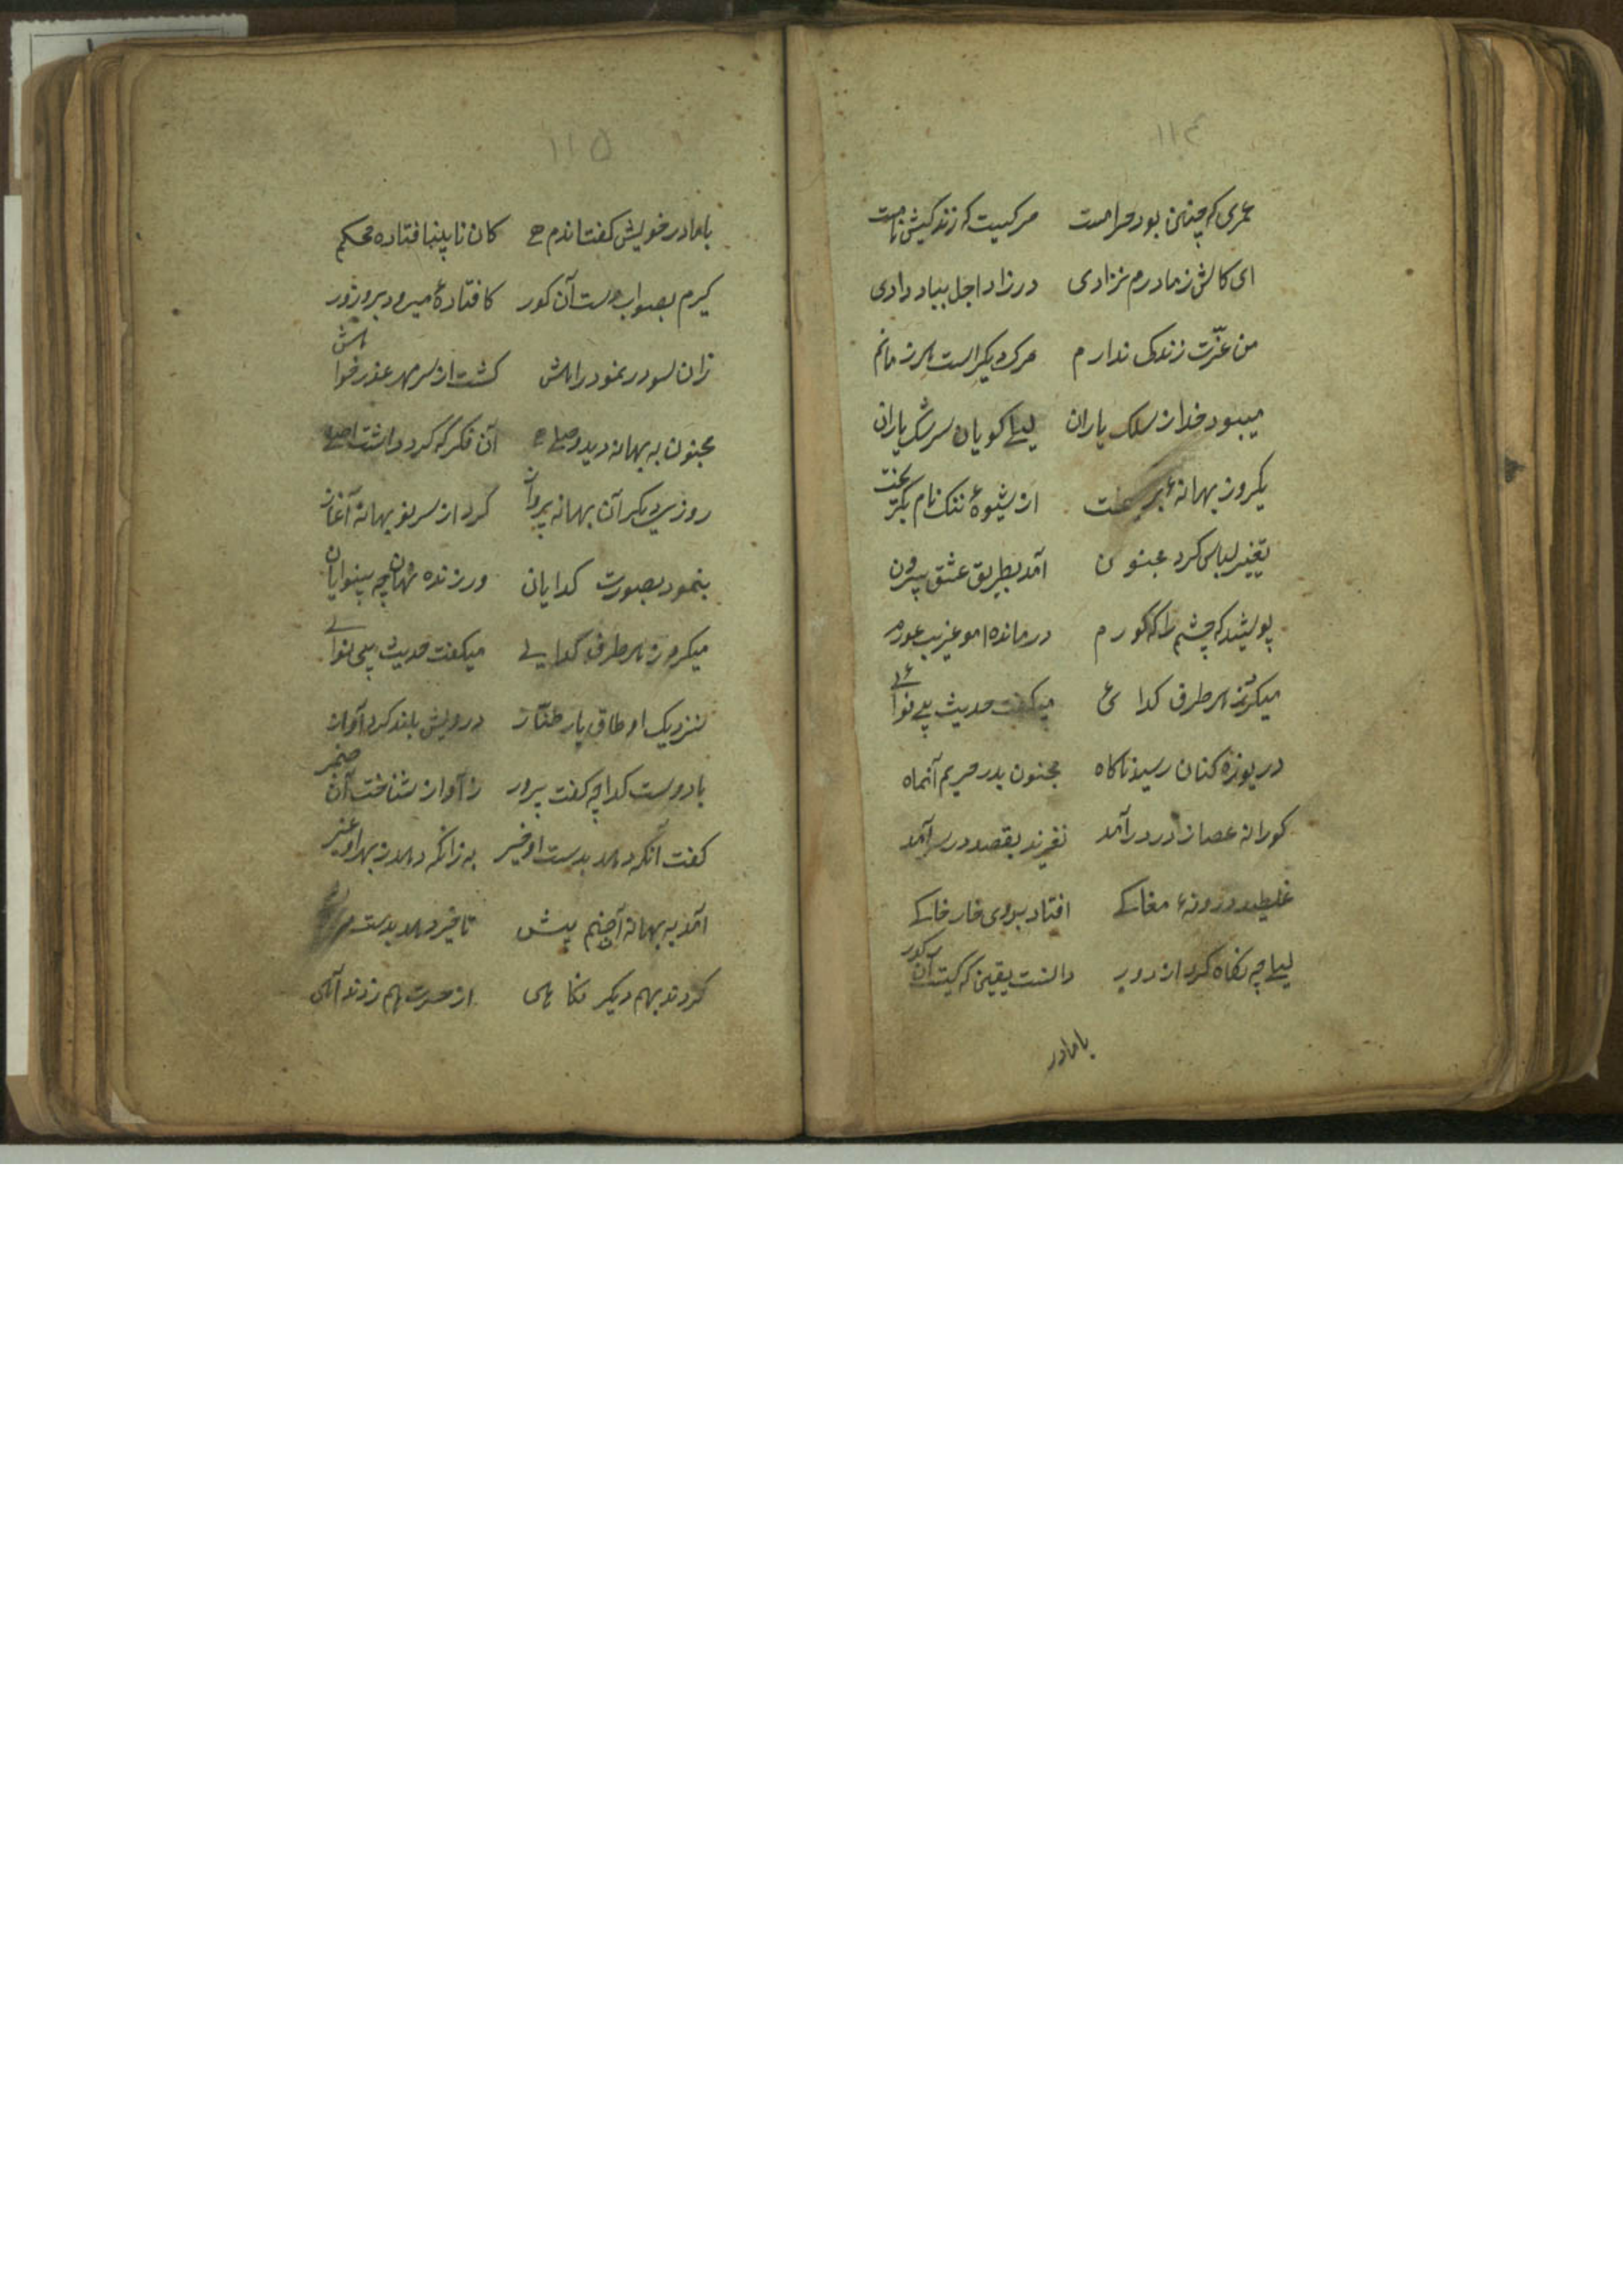 ۱۱۴
عمری که چنین بود حرامست مرکیست که زندکیش نامست
ای کاش ز مادرم نزادی در زاد اجل بباد دادی
من عزت زندکی ندارم مرک دیکر است هر زمانم
میبود خدا از سلک یاران لیلی کویان سرشک باران
یکروز بهانهٔ از شیوهٔ ننک نام بکریخت
تغییر لباس کرد مجنون آمد بطریق عشق بیرون
پوشید که چشم را که کورم در مانده ام و غریب عورم
میکرد ز هر طرف کدائی میکفت حدیث بی نوائی
دریوزه کنان رسید ناکاه مجنون بدر حریم آنماه
کورانه عصازنان در درآمد بقصد در سر آمد
غلطید در مغاکی افتاد بروی خار خاکی
لیلی چه نکاه کرد از دور دانست یقین که کیست آن کور
بامادر
۱۱۵
بامادر خویش کفت اندم کان نابینا افتاده محکم
کیرم بصواب دست آن کور کافتادهٔ میرود بروزور
زان سو در نمود راهش کشت از سر مهر عذر خواهش
مجنون به بهانه دید وصلی آن فکر که کرد داشت اصلی
روزی دیکر آن بهانه پرواز کرد از سر نو بهانه آغاز
بنمود بصورت کدایان ورزنده نهان چه بینوایان
میکرد ز هر طرف کدایی میکفت حدیث بی نوائی
نزدیک اوطاق یار طناز درویش بلند کرد آواز
بادوست کدا چه کفت برور ز آواز شناخت آن صنم
کفت آنکه دهد بدست او خیر به زانکه دهد ز بهر او غیر
آمد به بهانه آصنم پیش تا خیر دهد بدست
کردند بهم دیکر نکاهی از حسرت هم زدند آهی